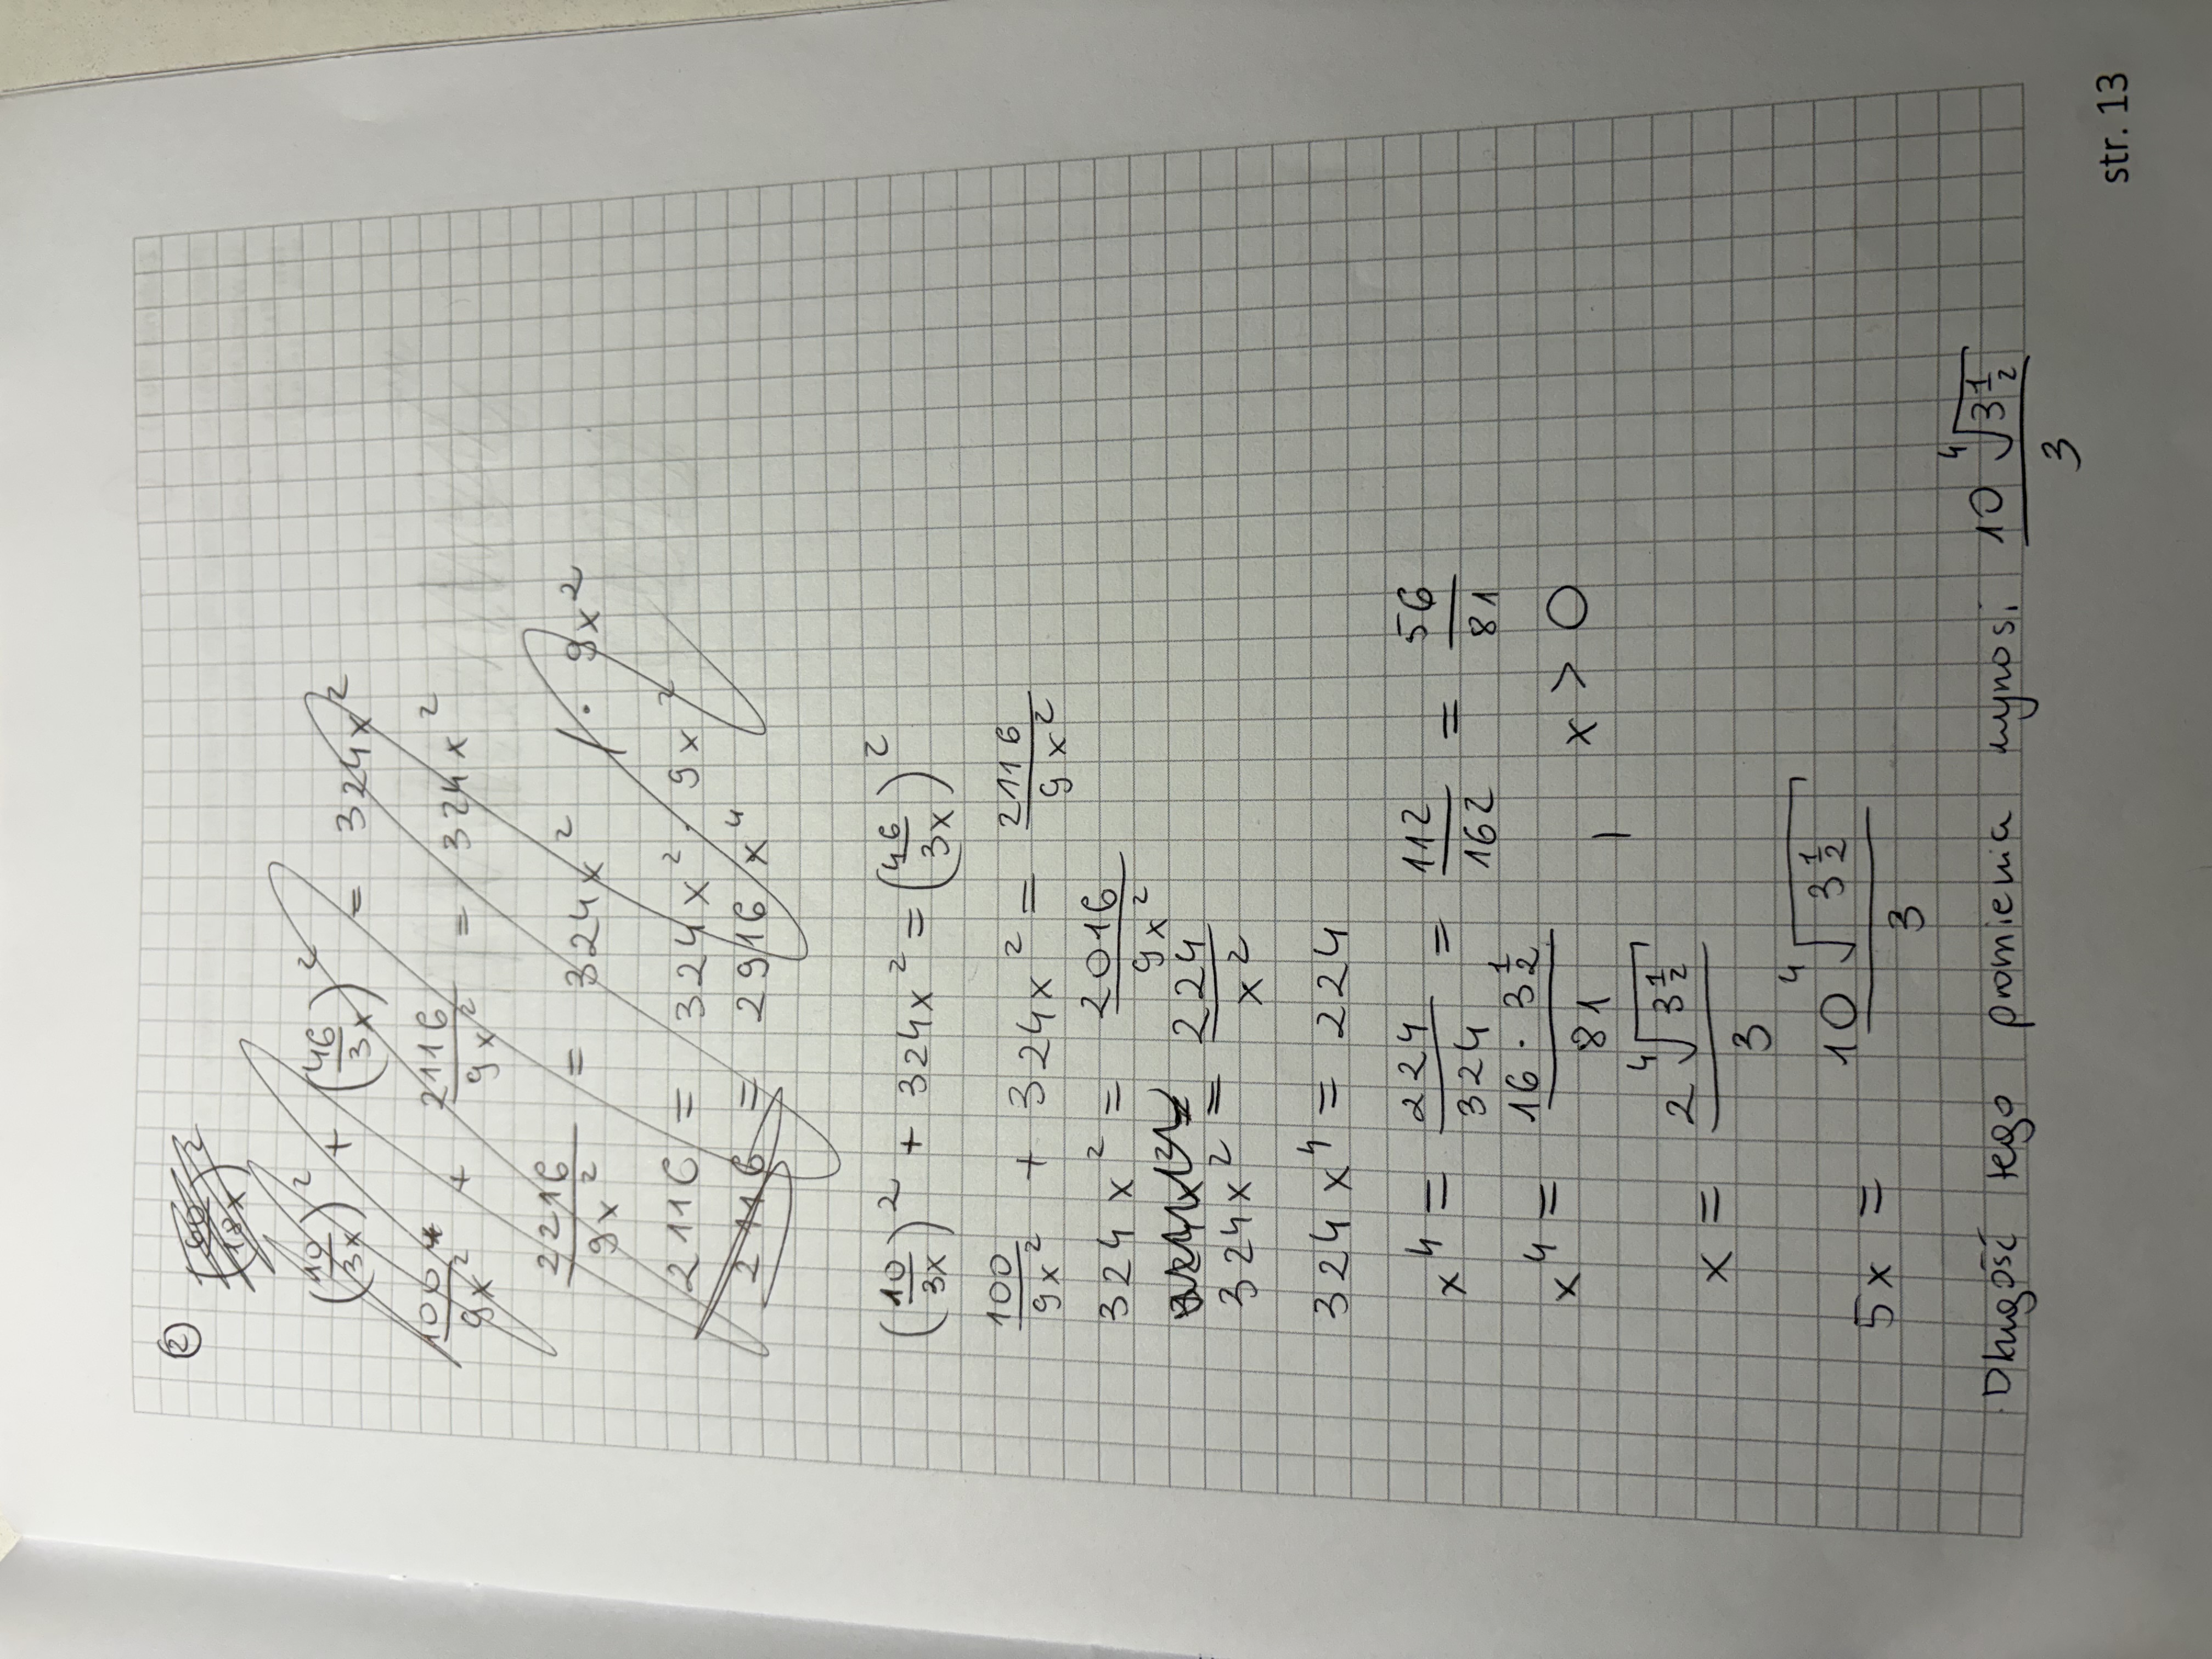 ②
(10/3x)² + (46/3x)² = 324x²
100/9x² + 2116/9x² = 324x²
2216/9x² = 324x² /· 9x²
2116 = 324x² · 9x²
2116 = 2916x⁴
(10/3x)² + 324x² = (46/3x)²
100/9x² + 324x² = 2116/9x²
324x² = 2016/9x²
324x² = 224/x²
324x⁴ = 224
x⁴ = 224/324 = 112/162 = 56/81
x⁴ = 16 · 3½/81 , x > 0
x = 2⁴√3½/3
5x = 10⁴√3½/3
Długość tego promienia wynosi 10⁴√3½/3
str. 13